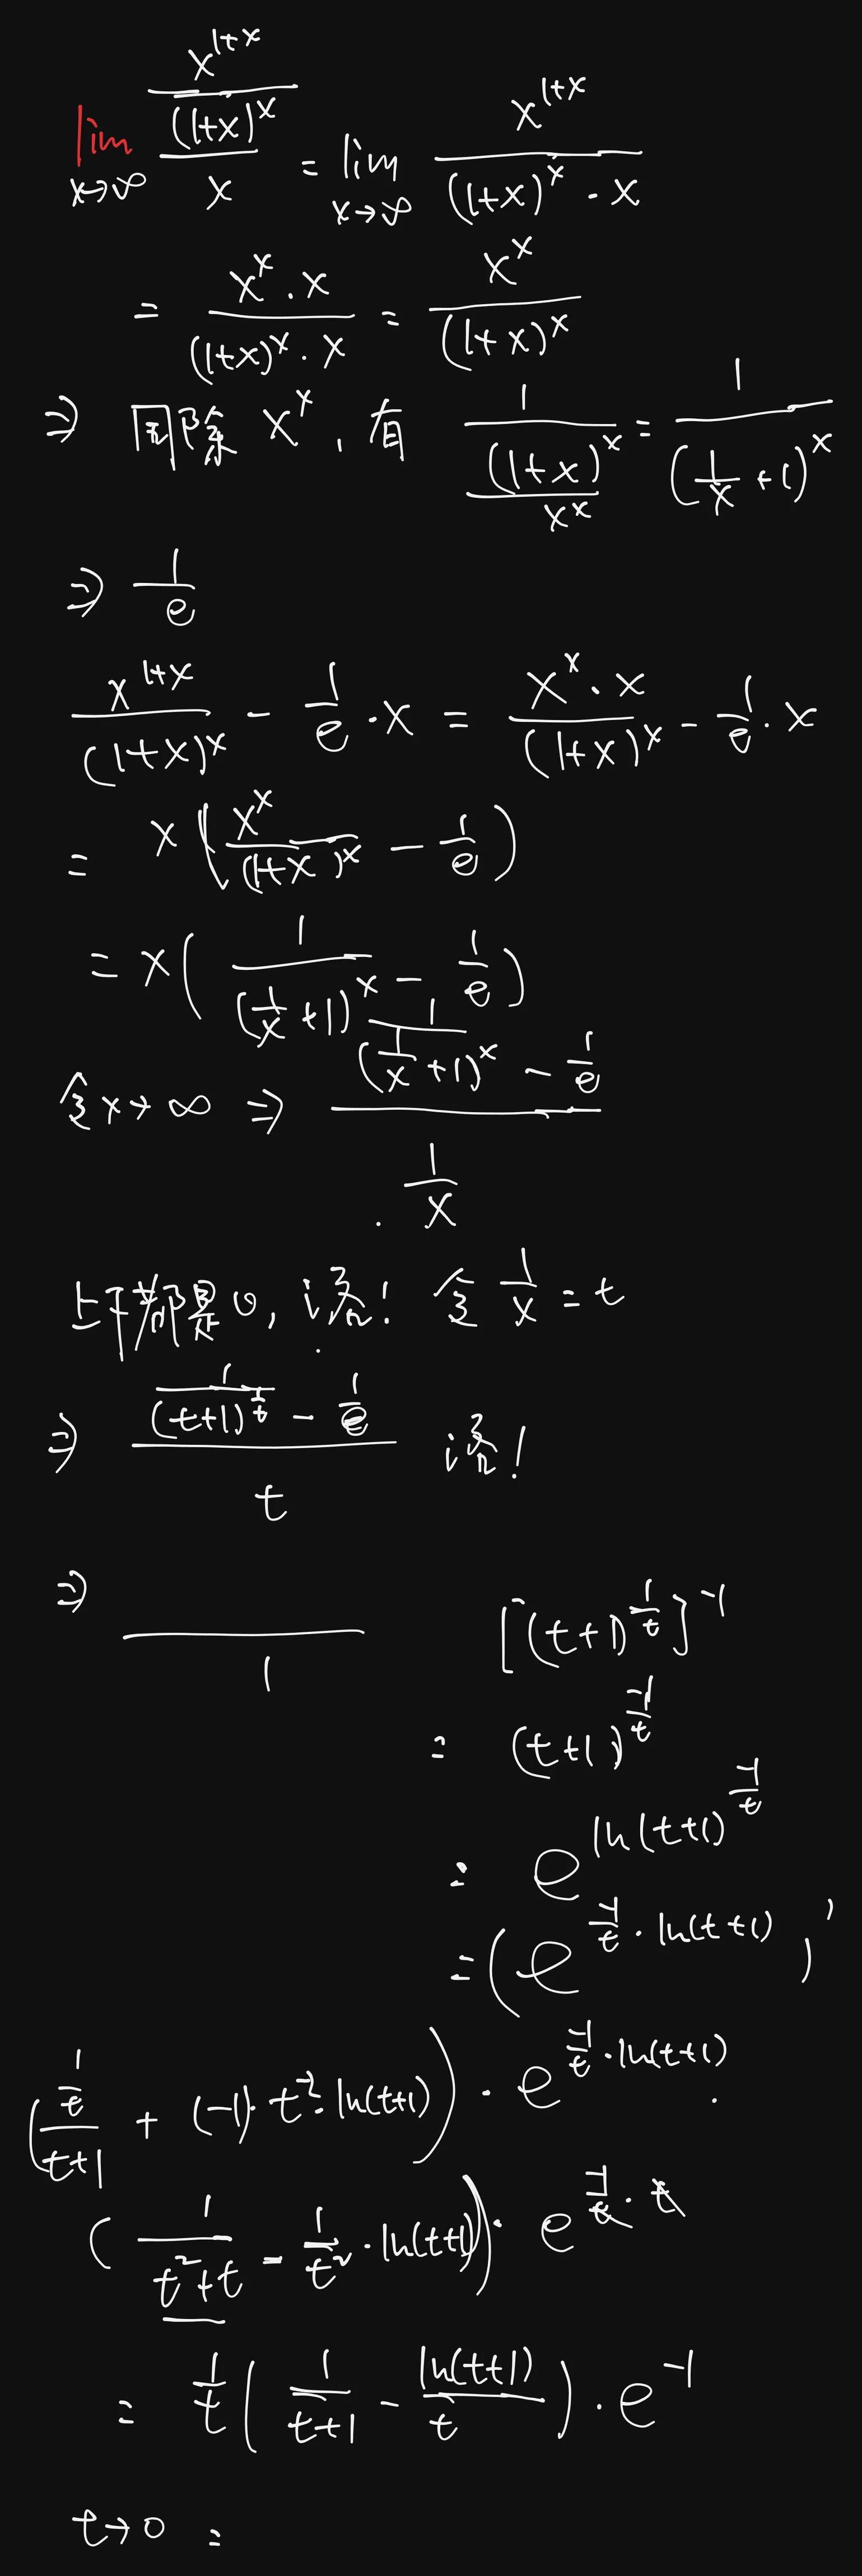 lim_{x→∞} \frac{x^{1+x}}{\frac{(1+x)^x}{x}} = lim_{x→∞} \frac{x^{1+x}}{(1+x)^x · x}
= \frac{x^x · x}{(1+x)^x · x} = \frac{x^x}{(1+x)^x}
⇒ 同除 x^x, 有 \frac{1}{\frac{(1+x)^x}{x^x}} = \frac{1}{(\frac{1}{x}+1)^x}
⇒ \frac{1}{e}
\frac{x^{1+x}}{(1+x)^x} - \frac{1}{e} · x = \frac{x^x · x}{(1+x)^x} - \frac{1}{e} · x
= x(\frac{x^x}{(1+x)^x} - \frac{1}{e})
= x(\frac{1}{(\frac{1}{x}+1)^x} - \frac{1}{e})
令x→∞ ⇒ \frac{\frac{1}{(\frac{1}{x}+1)^x} - \frac{1}{e}}{\frac{1}{x}}
上下都是0, 洛! 令 \frac{1}{x} = t
⇒ \frac{\frac{1}{(t+1)^{\frac{1}{t}}} - \frac{1}{e}}{t} 洛!
⇒ \frac{}{1} [(t+1)^{\frac{1}{t}}]^{-1}
= (t+1)^{\frac{-1}{t}}
= e^{ln(t+1)^{\frac{-1}{t}}}
= (e^{\frac{-1}{t} · ln(t+1)})'
(\frac{\frac{1}{t}}{t+1} + (-1) · t^{-2} · ln(t+1)) · e^{\frac{-1}{t} · ln(t+1)}
(\frac{1}{t^2+t} - \frac{1}{t^2} · ln(t+1)) · e^{\frac{-1}{t} · t}
= \frac{1}{t}(\frac{1}{t+1} - \frac{ln(t+1)}{t}) · e^{-1}
t→0 =